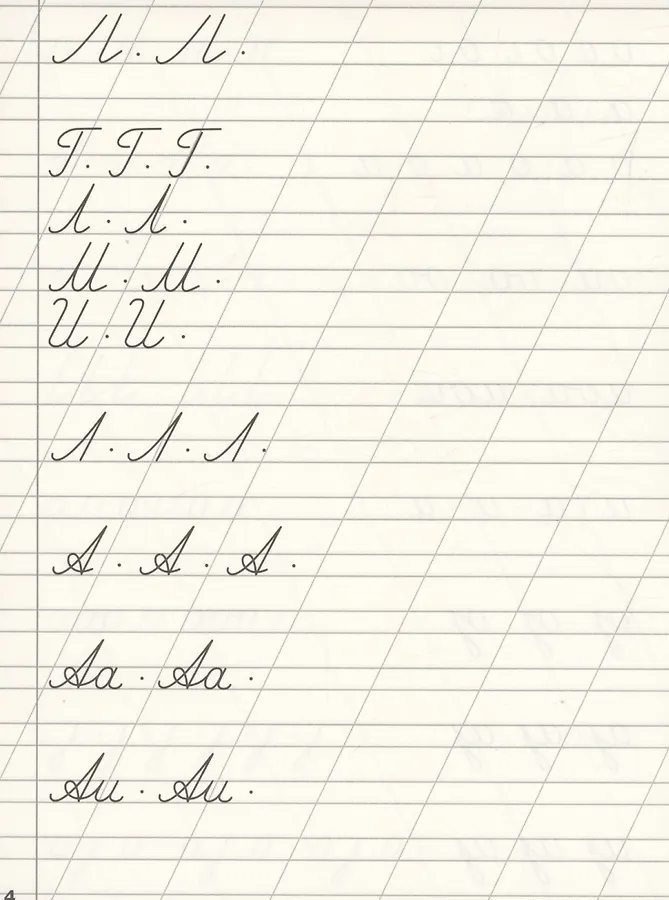 Г. Г. Г.
Л. Л.
М. М.
И. И.
Л. Л. Л.
А. А. А.
Аа. Аа.
Аи. Аи.
4